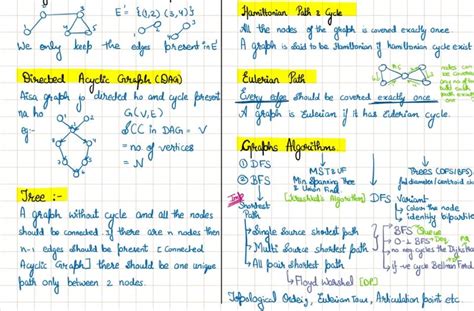 E' = {(1,2) (3,4)}
We only keep the edges present in E'
Directed Acyclic Graph (DAG)
Aisa graph jo directed ho and cycle present
na ho
G(V, E)
eg:-
SCC in DAG = V
= no. of vertices
= N
Tree :-
A graph without cycle and all the nodes
should be connected if there are n nodes then
n-1 edges should be present [Connected
Acyclic Graph] there should be one unique
path only between 2 nodes.
Hamiltonian Path & Cycle
All the nodes of the graph is covered exactly once.
A graph is said to be Hamiltonian if hamiltonian cycle exist
Eulerian Path
nodes can
be covered
Every edge should be covered exactly once
A graph is Eulerian if it has Eulerian cycle.
Graphs Algorithms
① DFS
② BFS
MST & UF
Min Spanning Tree
& Union Find
[Kruskal's Algorithm]
Trees (DFS/BFS)
DFS Variant
Colour the node
identify bipartite
Imp
Shortest
Path
Single Source shortest path
Multi Source shortest path
All pair shortest path
Floyd Warshal [DP]
BFS Queue
0-1 BFS
no neg cycles the Dijkstra
if -ve cycle Bellman Ford
Topological Order, Eulerian Tour, Articulation point etc